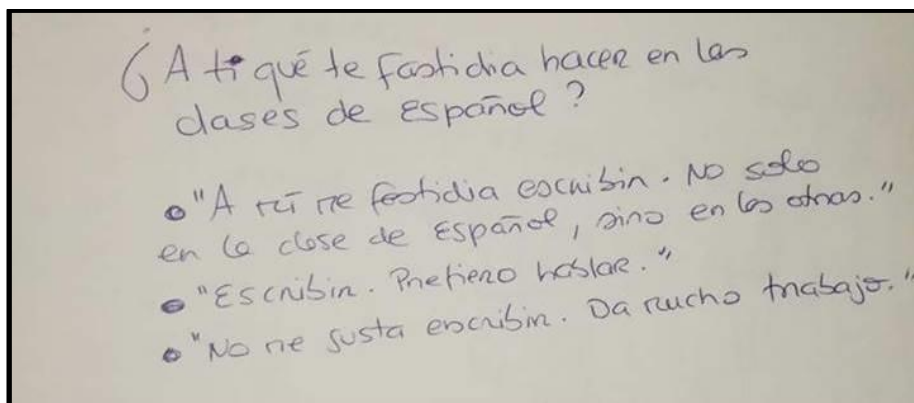 ¿A ti qué te fastidia hacer en las
clases de español?
• "A mí me fastidia escribir. No solo
en la clase de español, sino en las otras."
• "Escribir. Prefiero hablar."
• "No me gusta escribir. Da mucho trabajo."